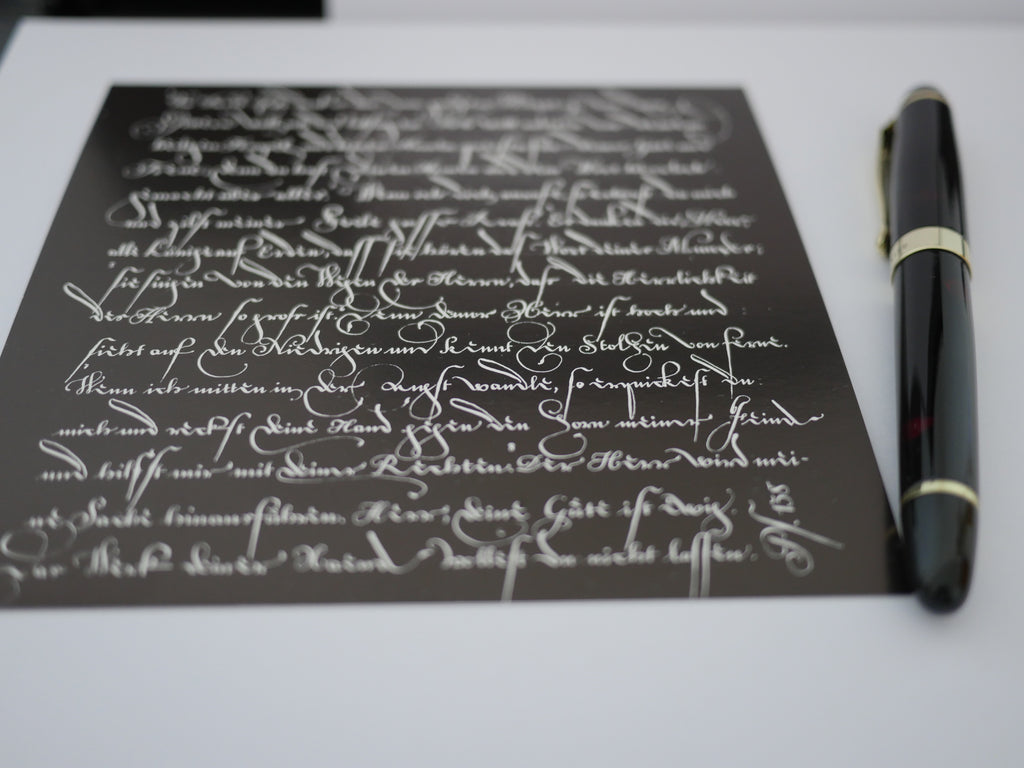 gemacht über alles. Wenn ich dich anrufe, so erhörst du mich
und gibst meiner Seele große Kraft. Es danken dir, Herr,
alle Könige auf Erden, daß sie hören das Wort deines Mundes;
sie singen von den Wegen des Herrn, daß die Herrlichkeit
des Herrn so groß ist. Denn der Herr ist hoch und
sieht auf den Niedrigen und kennt den Stolzen von ferne.
Wenn ich mitten in der Angst wandle, so erquickest du
mich und reckst deine Hand gegen den Zorn meiner Feinde
und hilfst mir mit deiner Rechten. Der Herr wird mei-
ne Sache hinausführen. Herr, deine Güte ist ewig.
Das Werk deiner Hände wollest du nicht lassen.
Ps. 138